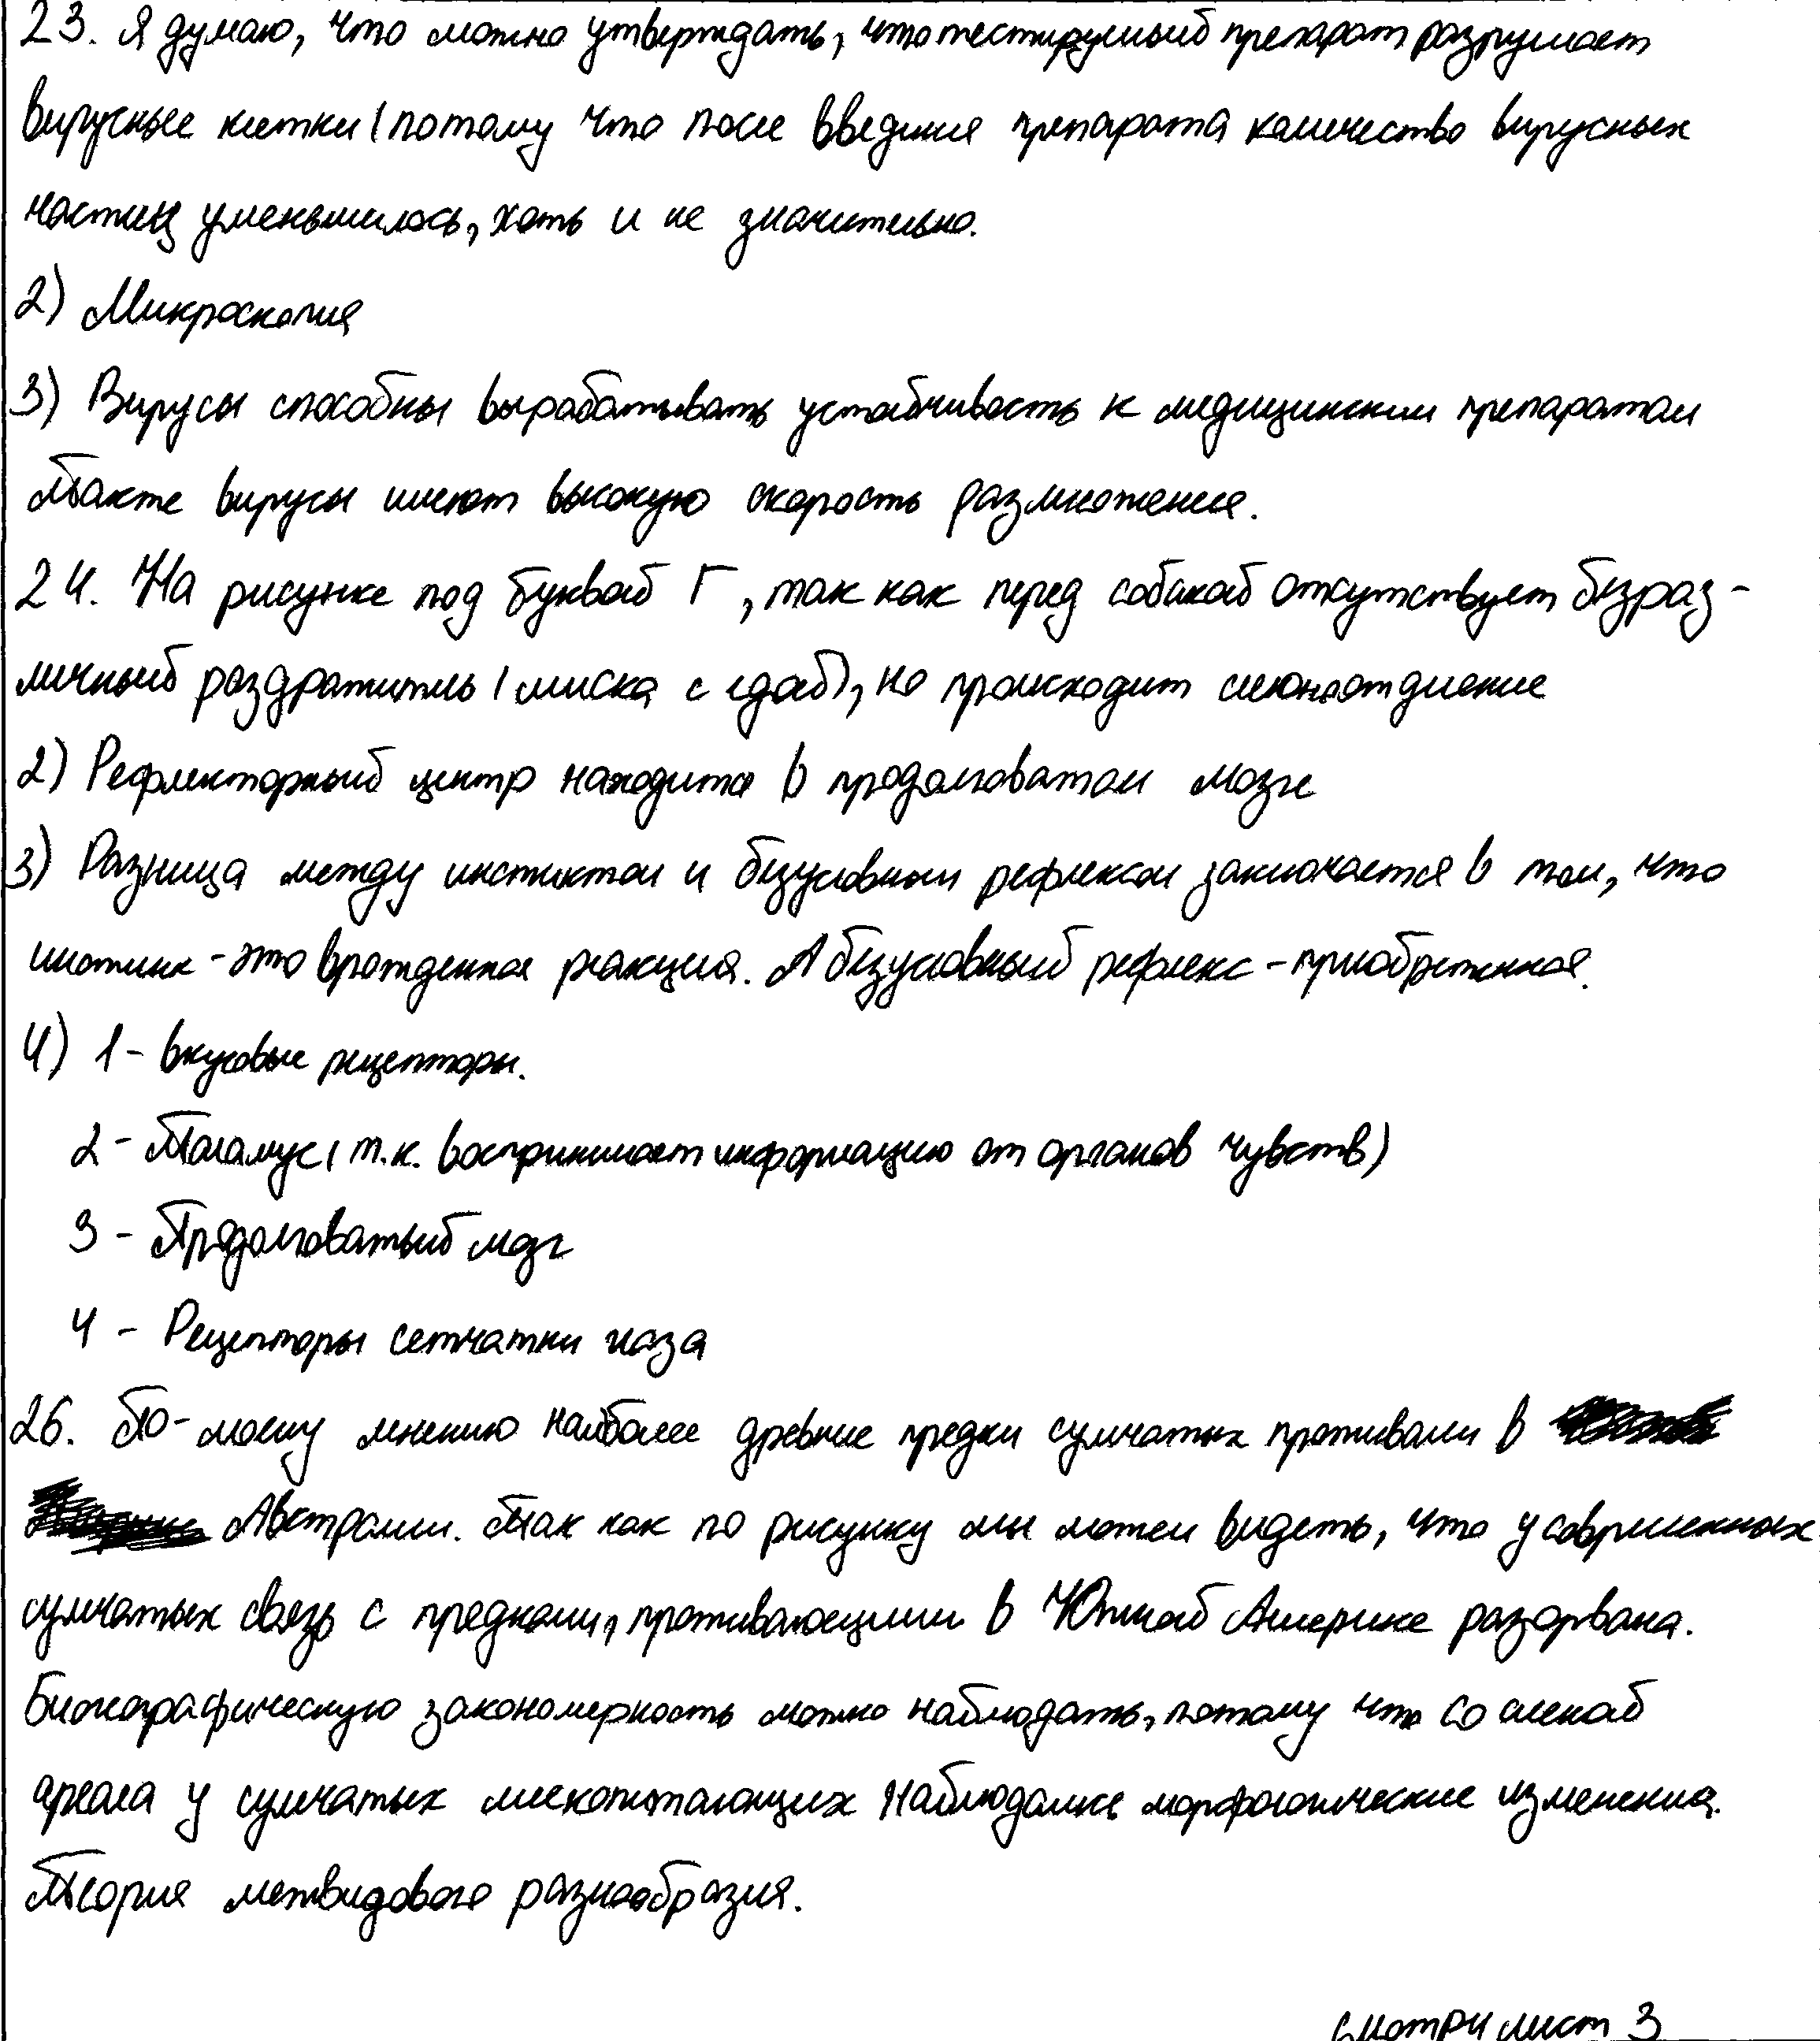 23. Я думаю, что можно утверждать, что тестируемый препарат разрушает
вирусные клетки (потому что после введения препарата количество вирусных
частиц уменьшилось, хоть и не значительно.
2) Микроскопия
3) Вирусы способны вырабатывать устойчивость к медицинским препаратам
Также вирусы имеют высокую скорость размножения.
24. На рисунке под буквой Г, так как перед собакой отсутствует безраз-
личный раздражитель (миска с едой), но происходит слюноотделение
2) Рефлекторный центр находится в продолговатом мозге
3) Разница между инстиктом и безусловным рефлексом заключается в том, что
инстинк - это врожденная реакция. А безусловный рефлекс - приобретенная.
4) 1 - вкусовые рецепторы.
2 - Таламус (т.к. воспринимает информацию от органов чувств)
3 - Продолговатый мозг
4 - Рецепторы сетчатки глаза
26. По-моему мнению наиболее древние предки сумчатых проживали в
Австралии. Так как по рисунку мы можем видеть, что у современных
сумчатых связь с предками, проживающими в Южной Америке разорвана.
Биогеографическую закономерность можно наблюдать, потому что со сменой
ареала у сумчатых млекопитающих наблюдались морфологические изменения.
Теория межвидового разнообразия.
смотри лист 3